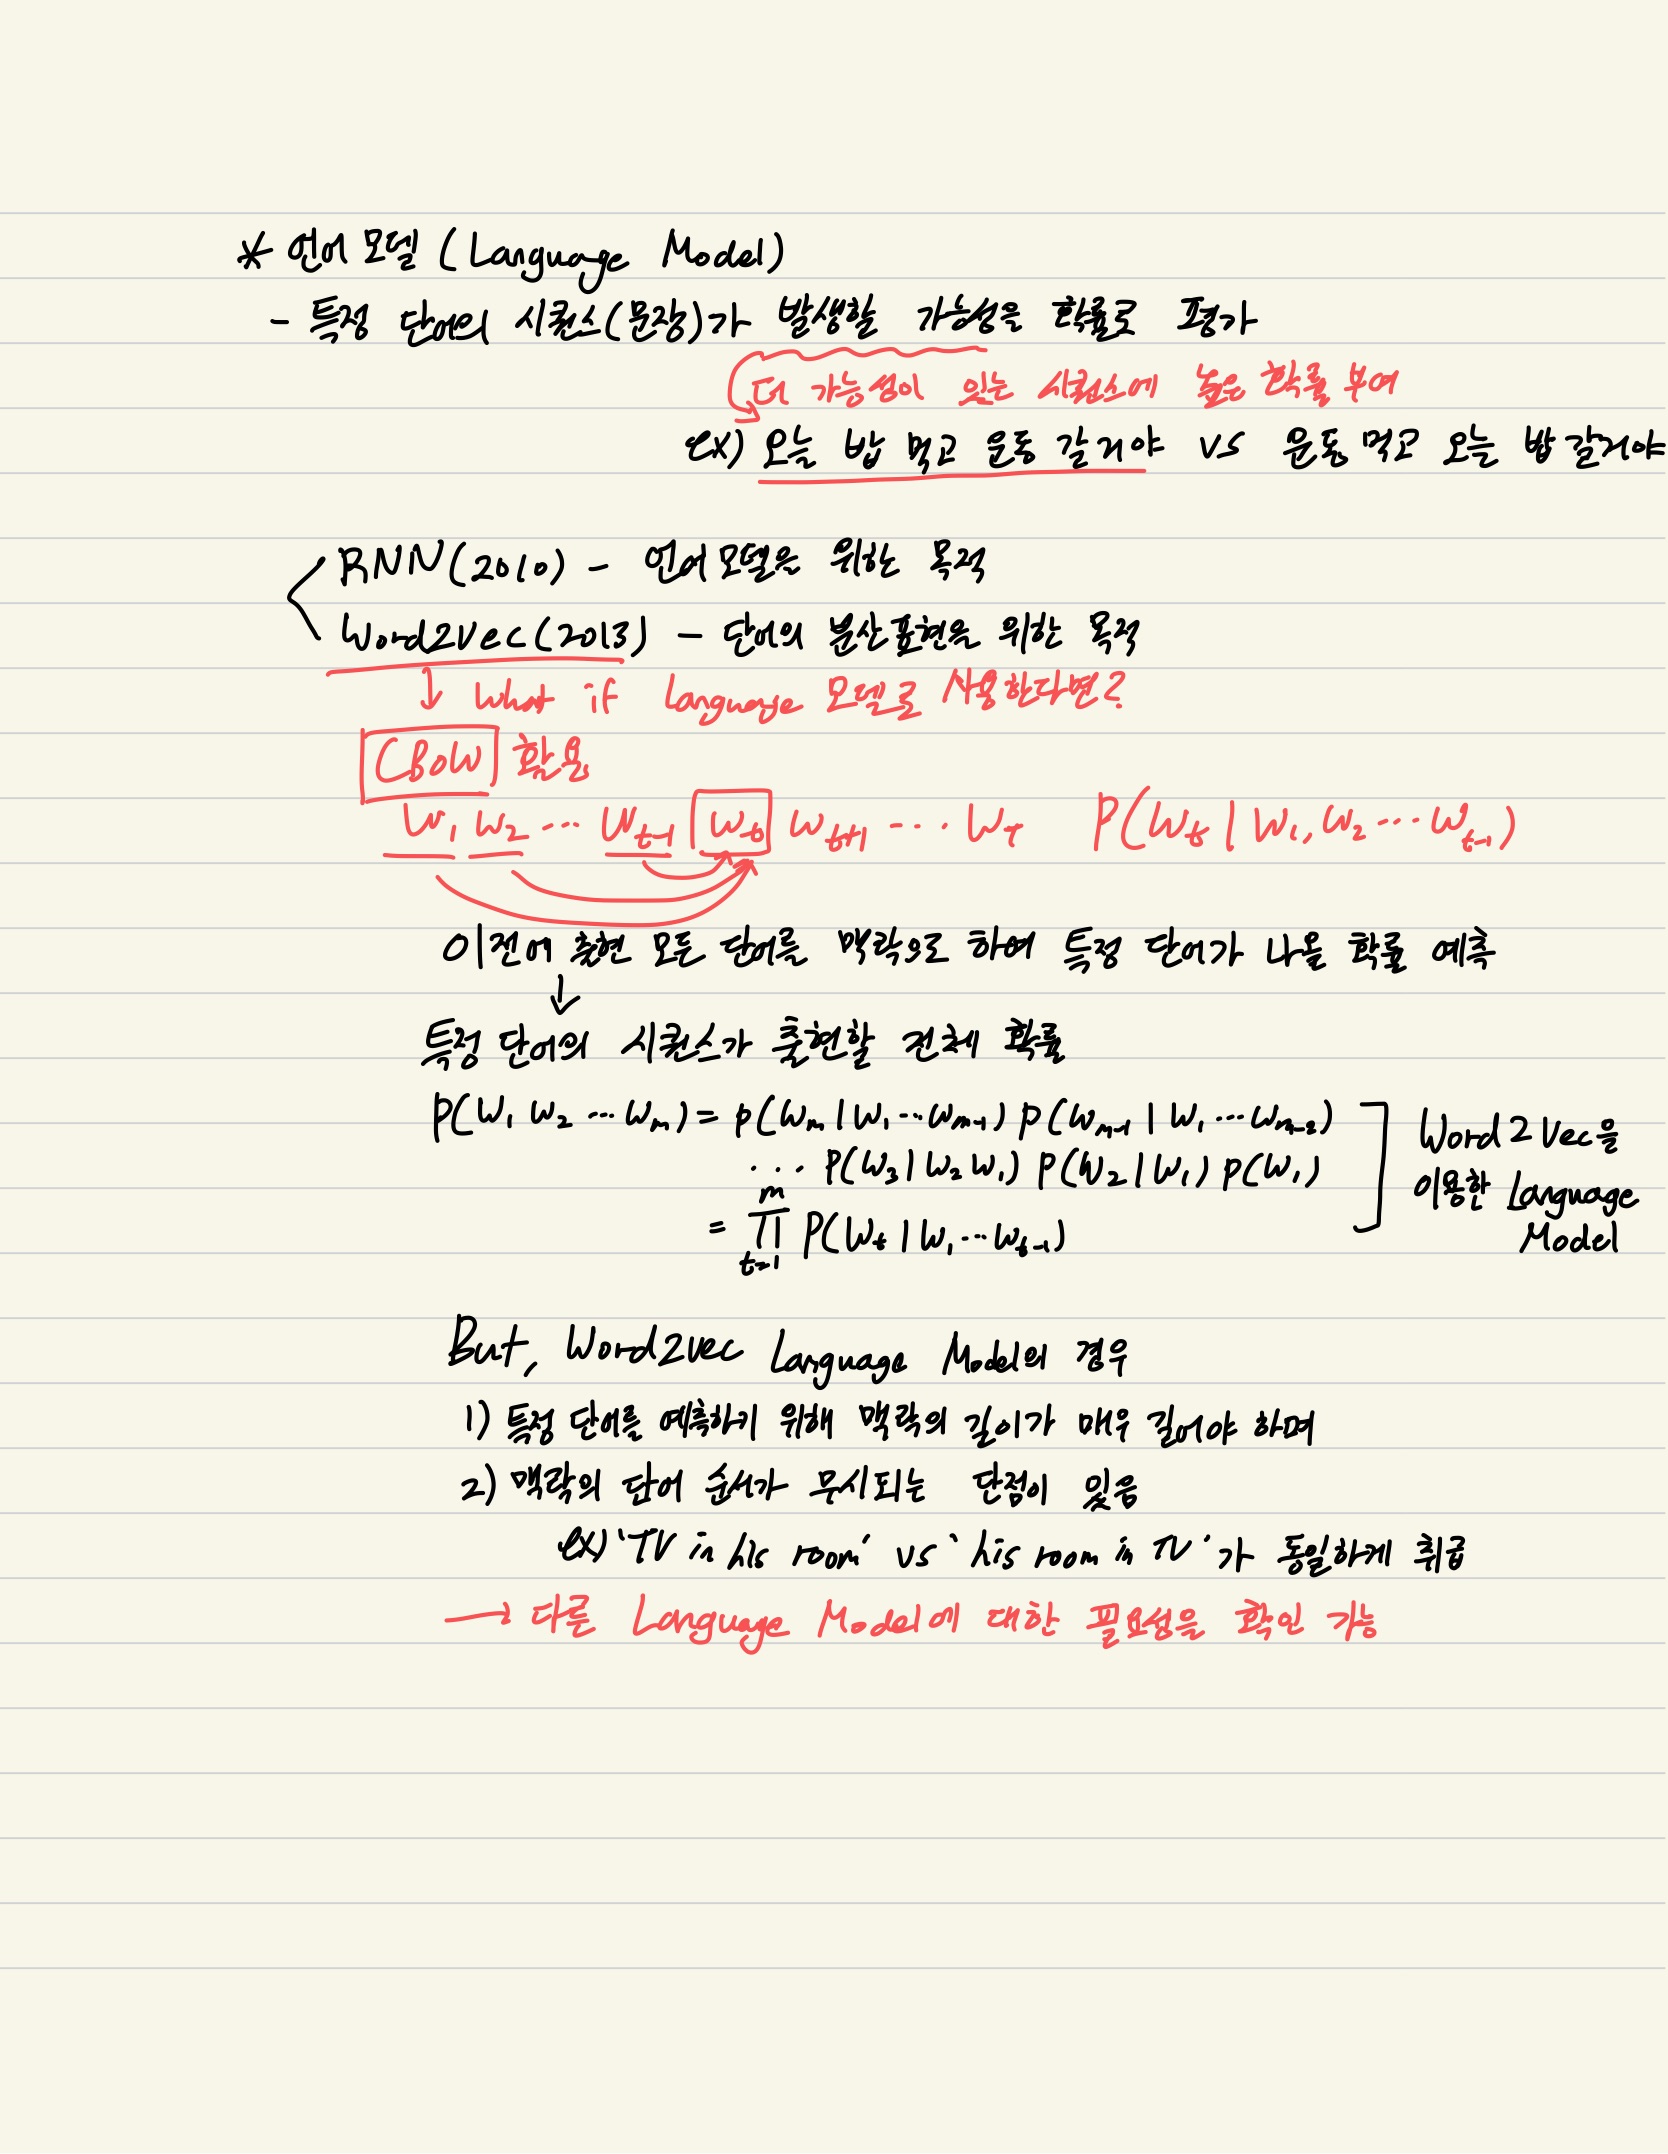 * 언어 모델 (Language Model)
- 특정 단어의 시퀀스(문장)가 발생할 가능성을 확률로 평가
더 가능성이 있는 시퀀스에 높은 확률 부여
ex) 오늘 밥 먹고 운동 갈거야 vs 운동 먹고 오는 밥 갈거야
RNN(2010) - 언어모델을 위한 목적
Word2Vec(2013) - 단어의 분산표현을 위한 목적
↓ What if Language 모델로 사용한다면?
CBOW 활용
W₁ W₂ ... Wt-1 Wt Wt+1 ... WT P(Wt | W₁, W₂ ... Wt-1)
이전에 출현 모든 단어를 맥락으로 하여 특정 단어가 나올 확률 예측
↓
특정 단어의 시퀀스가 출현할 전체 확률
P(W₁ W₂ ... Wm) = P(Wm | W₁ ... Wm-1) P(Wm-1 | W₁ ... Wm-2)
... P(W₃ | W₂ W₁) P(W₂ | W₁) P(W₁)
= ∏ t=1 m P(Wt | W₁ ... Wt-1)
Word2Vec을
이용한 Language
Model
But, Word2vec Language Model의 경우
1) 특정 단어를 예측하기 위해 맥락의 길이가 매우 길어야 하며
2) 맥락의 단어 순서가 무시되는 단점이 있음
ex) 'TV in his room' vs 'his room in TV'가 동일하게 취급
→ 다른 Language Model에 대한 필요성을 확인 가능